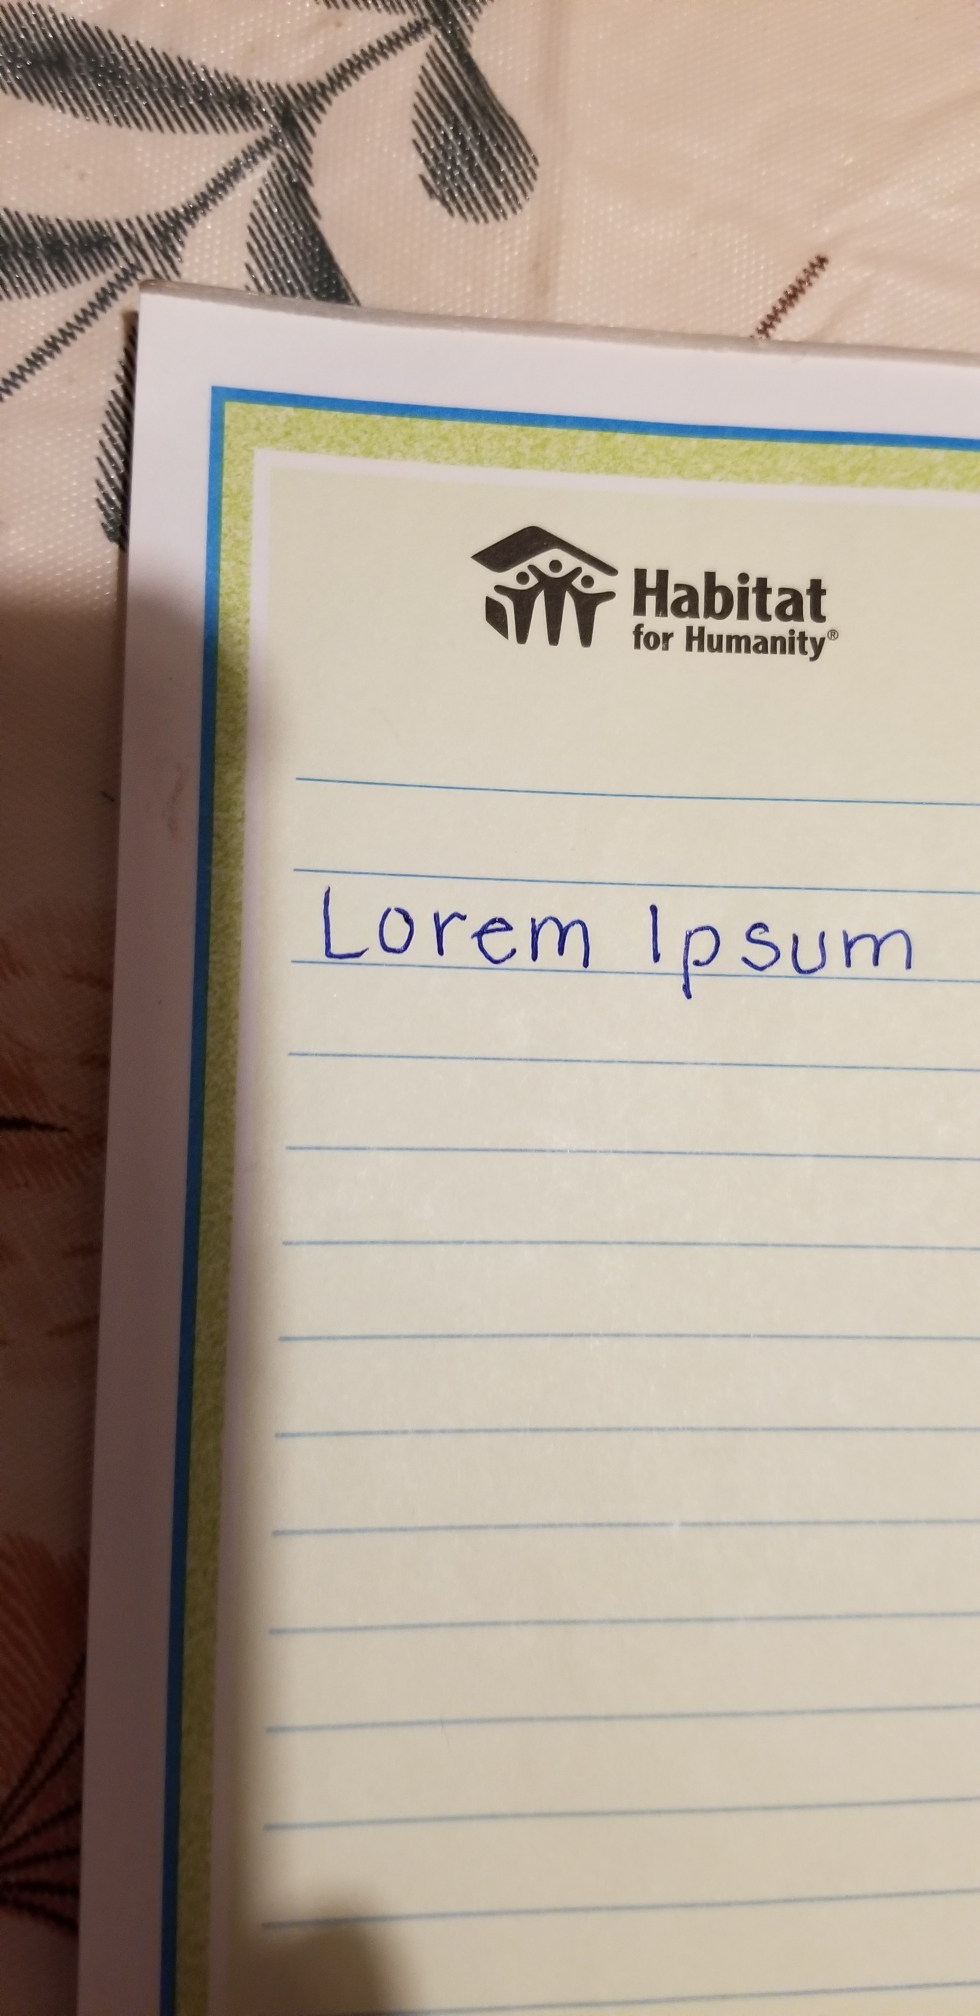 Habitat
for Humanity®
Lorem Ipsum